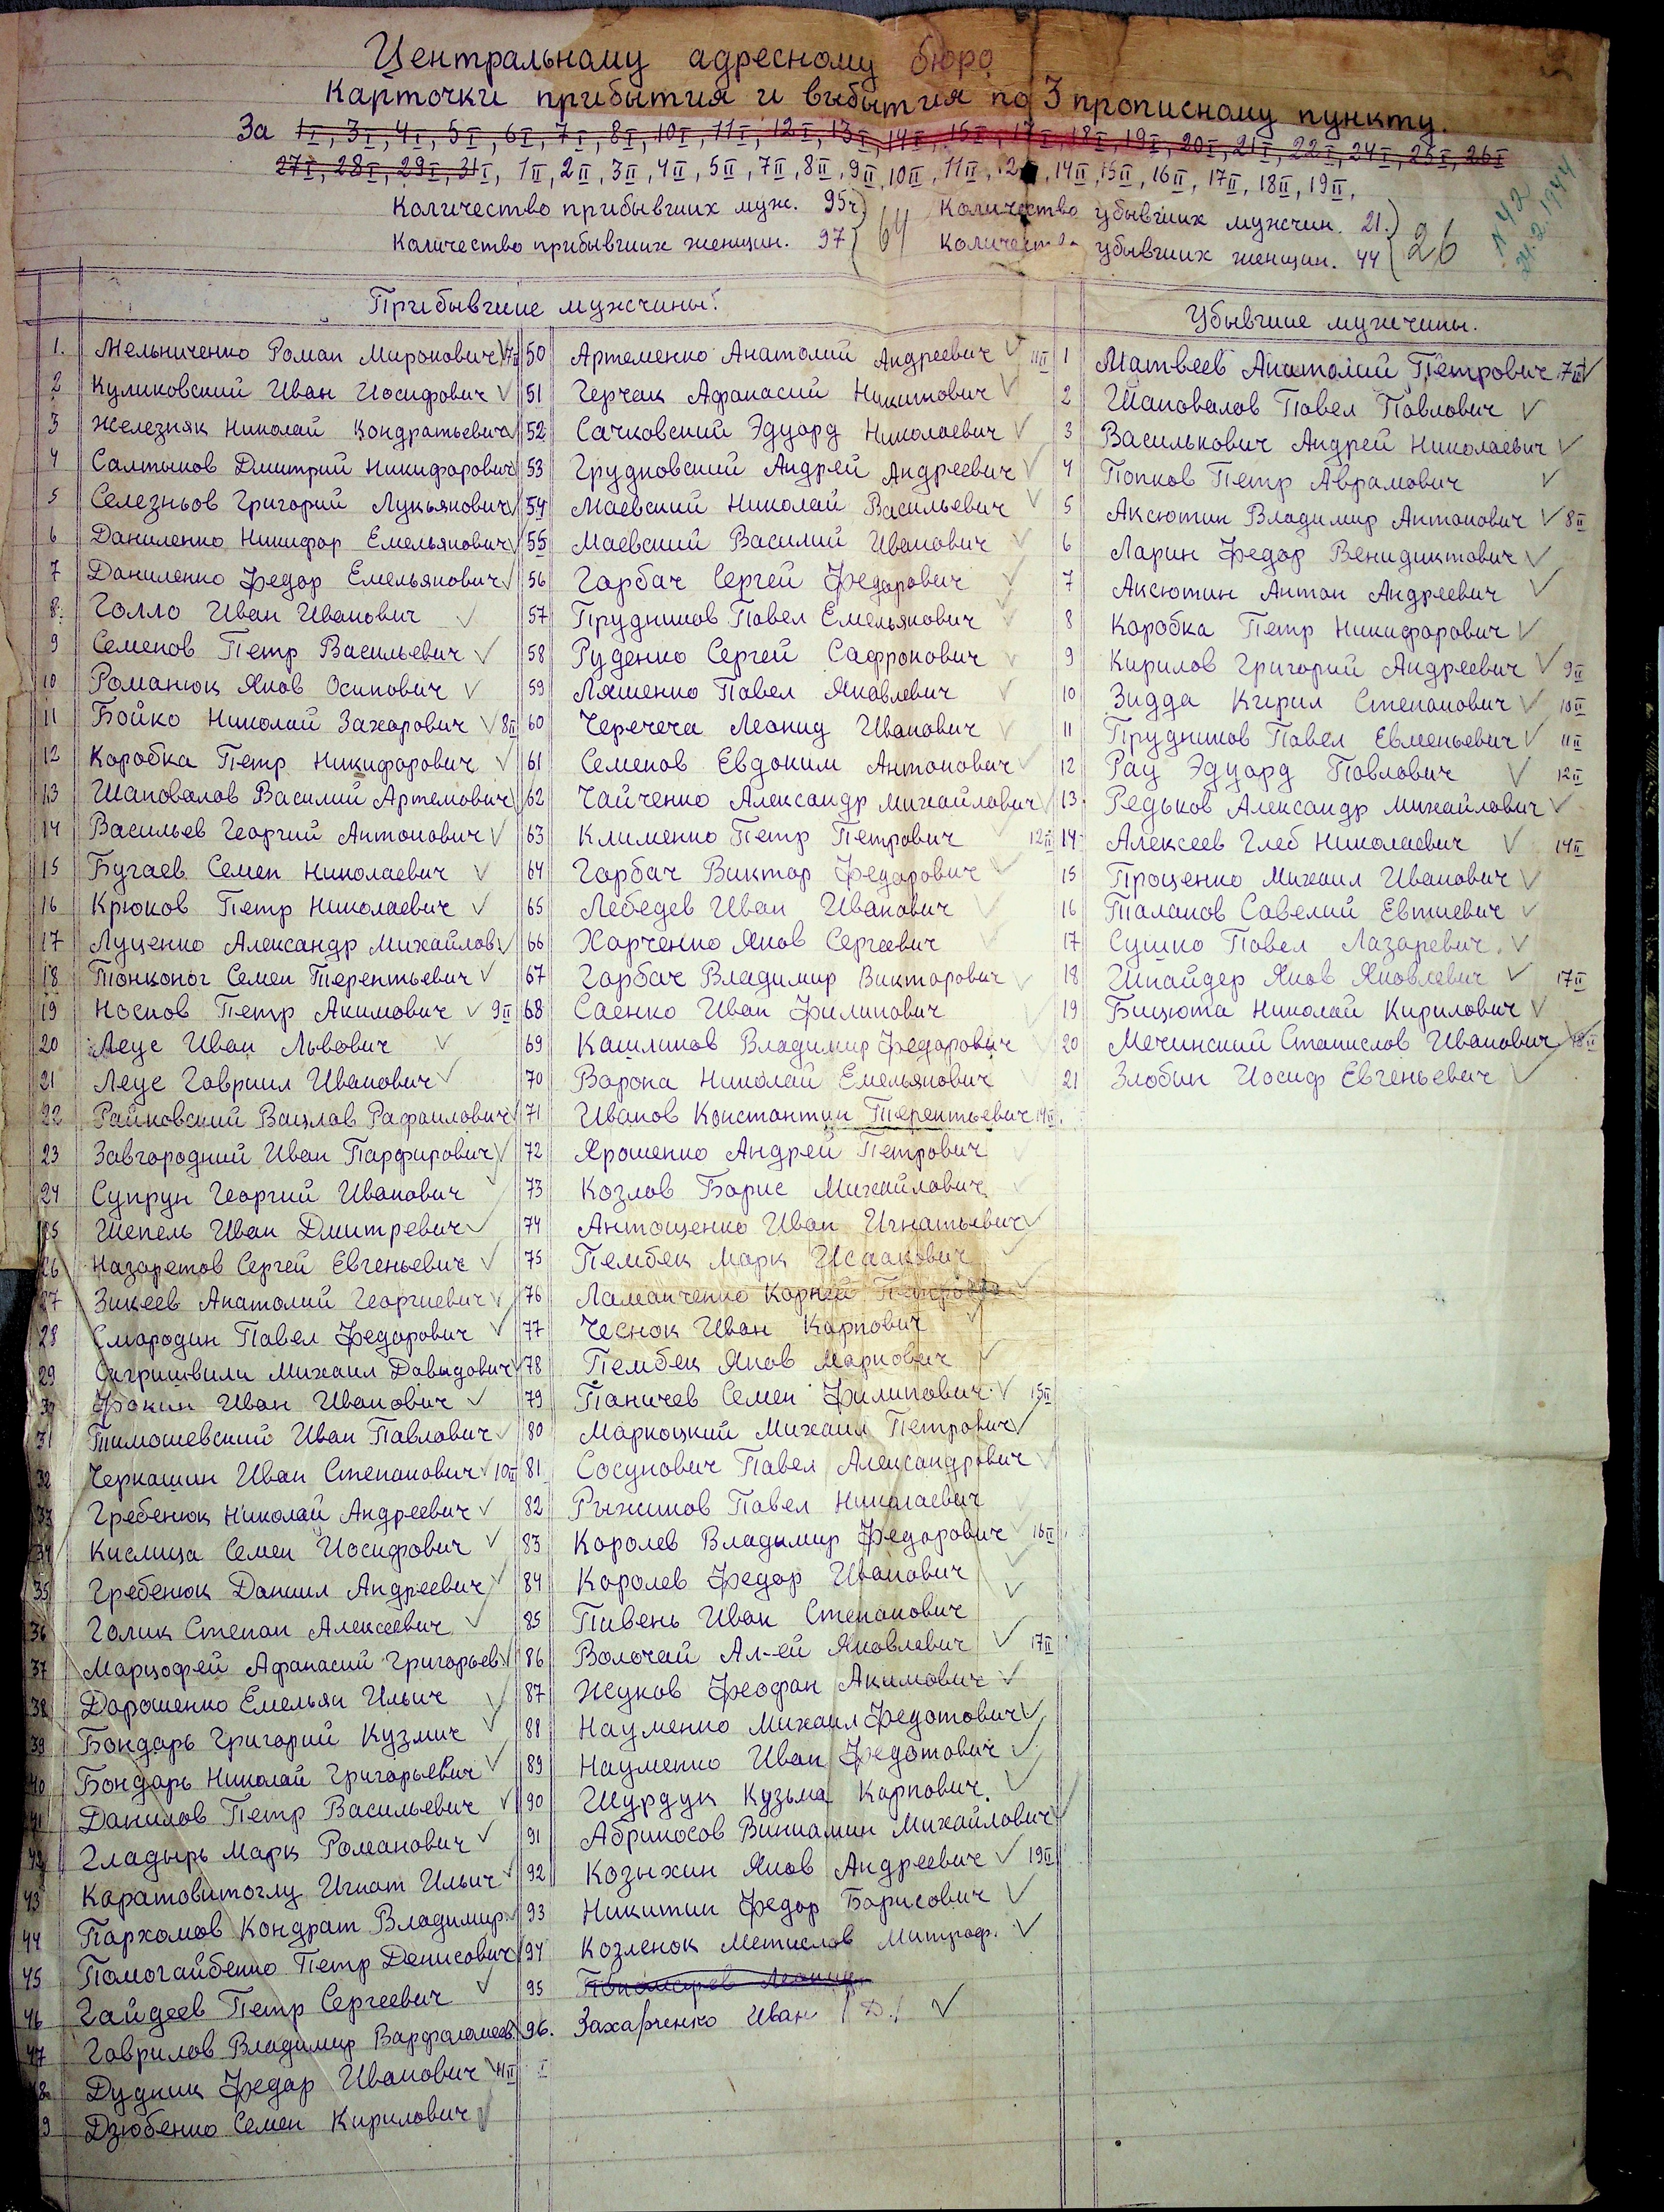 Центральному адресному бюро
Карточки прибытия и выбытия по 3 прописному пункту.
За 1I, 3I, 4I, 5I, 6I, 7I, 8I, 10I, 11I, 12I, 13I, 14I, 15I, 17I, 18I, 19I, 20I, 21I, 22I, 24I, 25I, 26I
27I, 28I, 29I, 31I, 1II, 2II, 3II, 4II, 5II, 7II, 8II, 9II, 10II, 11II, 12, 14II, 15II, 16II, 17II, 18II, 19II,
Количество прибывших муж. 95
Количество прибывших женщин. 97
64
Количество убывших мужчин. 21.
Количество убывших женщин. 44
26
N 42
24.2.1944
Прибывшие мужчины:
1. Мельниченко Роман Миронович 7II
2 Куликовский Иван Иосифович
3 Железняк Николай Кондратьевич
4 Салтыков Дмитрий Никифорович
5 Селезньов Григорий Лукьянович
6 Даниленко Никифор Емельянович
7 Даниленко Федор Емельянович
8. Голло Иван Иванович
9 Семенов Петр Васильевич
10 Романюк Яков Осипович
11 Бойко Николай Захарович 8II
12 Коробка Петр Никифорович
13 Шаповалов Василий Артемович
14 Васильев Георгий Антонович
15 Бугаев Семен Николаевич
16 Крюков Петр Николаевич
17 Луценко Александр Михайлов.
18 Тонконог Семен Терентьевич
19 Носков Петр Акимович 9II
20 Леус Иван Львович
21 Леус Гавриил Иванович
22 Райковский Вацлав Рафаилович
23 Завгородний Иван Парфирович
24 Супрун Георгий Иванович
25 Шепель Иван Дмитревич
26 Назаретов Сергей Евгеньевич
27 Зикеев Анатолий Георгиевич
28 Смородин Павел Федорович
29 Сигришвили Михаил Давыдович
30 Фокин Иван Иванович
31 Тимошевский Иван Павлович
32 Черкашин Иван Степанович 10II
33 Гребенюк Николай Андреевич
34 Кислица Семен Иосифович
35 Гребенюк Даниил Андреевич
36 Голик Степан Алексеевич
37 Марцофей Афанасий Григорьев.
38 Дорошенко Емельян Ильич
39 Бондарь Григорий Кузмич
40 Бондарь Николай Григорьевич
41 Данилов Петр Васильевич
42 Гладырь Марк Романович
43 Игнат Ильич
44 Пархомов Кондрат Владимир.
45 Помогайбенко Петр Денисович
46 Гайдеев Петр Сергеевич
47 Гаврилов Владимир Варфоломеев.
48 Дудник Федор Иванович 11II
9 Дзюбенко Семен Кирилович
50 Артеменко Анатолий Андреевич 11II
51 Герчак Афанасий Никитович
52 Сачковский Эдуард Николаевич
53 Грудковский Андрей Андреевич
54 Маевский Николай Васильевич
55 Маевский Василий Иванович
56 Горбач Сергей Федорович
57 Прудников Павел Емельянович
58 Руденко Сергей Сафронович
59 Ляшенко Павел Яковлевич
60 Черечеча Леонид Иванович
61 Семенов Евдоким Антонович
62 Чайченко Александр Михайлович
63 Клименко Петр Петрович 12II
64 Горбач Виктор Федорович
65 Лебедев Иван Иванович
66 Харченко Яков Сергеевич
67 Горбач Владимир Викторович
68 Саенко Иван Филипович
69 Кашликов Владимир Федорович
70 Ворона Николай Емельянович
71 Иванов Константин Терентьевич 14II.
72 Ярошенко Андрей Петрович
73 Козлов Борис Михайлович
74 Антощенко Иван Игнатьевич
75 Пембек Марк Исаакович
76 Ламанченко Корней
77 Чеснок Иван Карпович
78 Пембек Яков Маркович
79 Паничев Семен Филипович 15II
80 Маркоцкий Михаил Петрович
81 Сосунович Павел Александрович
82 Рыжиков Павел Николаевич
83 Королев Владимир Федорович 16II
84 Королев Федор Иванович
85 Пивень Иван Степанович
86 Волочай Ал-ей Яковлевич 17II
87 Жуков Феофан Акимович
88 Науменко Михаил Федотович
89 Науменко Иван Федотович
90 Шурдук Кузьма Карпович
91 Абрикосов Виниамин Михайлович
92 Козыхин Яков Андреевич 19II
93 Никитин Федор Борисович
94 Козленок Метислов Митроф.
95
96. Захарченко Иван /Д./
I
Убывшие мужчины.
1 Матвеев Анатолий Петрович 7II
2 Шаповалов Павел Павлович
3 Василькович Андрей Николаевич
4 Попков Петр Аврамович
5 Аксютин Владимир Антонович 8II
6 Ларин Федор Венидиктович
7 Аксютин Антон Андреевич
8 Коробка Петр Никифорович
9 Кирилов Григорий Андреевич 9II
10 Зидда Кирил Степанович 10II
11 Прудников Павел Евменьевич 11II
12 Рау Эдуард Павлович 12II
13. Редьков Александр Михайлович
14 Алексеев Глеб Николаевич 14II
15 Проценко Михаил Иванович
16 Таланов Савелий Евтиевич
17 Сушко Павел Лазаревич.
18 Шнайдер Яков Яковлевич 17II
19 Бицюта Николай Кирилович
20 Мечинский Станислов Иванович 18II
21 Злобин Иосиф Евгеньевич